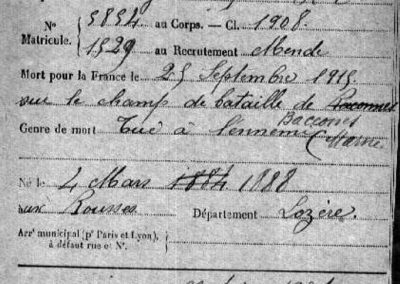 Nº 5854 au Corps. — Cl. 1908
Matricule. 1529 au Recrutement Mende
Mort pour la France le 25 Septembre 1915
sur le champ de bataille de
Bacconnes
Genre de mort Tué à l'ennemi (Marne
Né le 4 Mars 1884 1888
aux Rousses Département Lozère.
Arrᵗ municipal (pʳ Paris et Lyon),
à défaut rue et Nº.